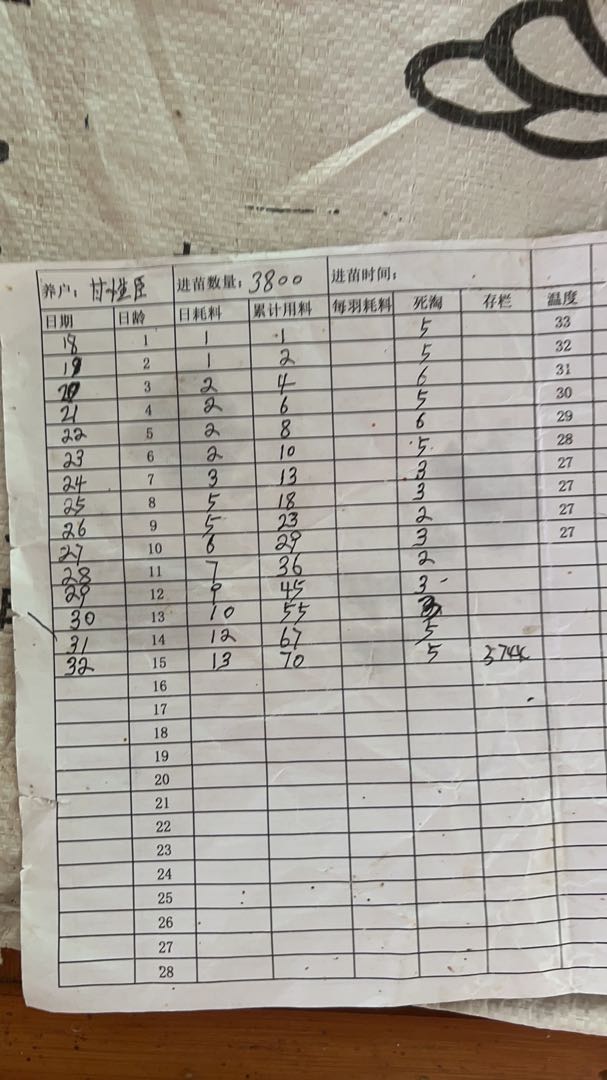 养户：甘恒臣 进苗数量：3800 进苗时间：
日期 日龄 日耗料 累计用料 每羽耗料 死淘 存栏 温度
18 1 1 1 5 33
19 2 1 2 5 32
20 3 2 4 6 31
21 4 2 6 5 30
22 5 2 8 6 29
23 6 2 10 5 28
24 7 3 13 3 27
25 8 5 18 3 27
26 9 5 23 2 27
27 10 6 29 3 27
28 11 7 36 2
29 12 9 45 3
30 13 10 55
31 14 12 67 5
32 15 13 70 5 3744
16
17
18
19
20
21
22
23
24
25
26
27
28